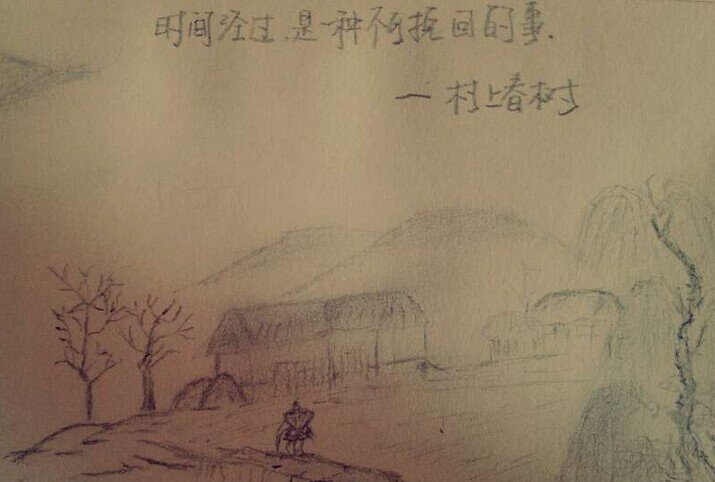 时间经过,是一种不可挽回的事.
—村上春树